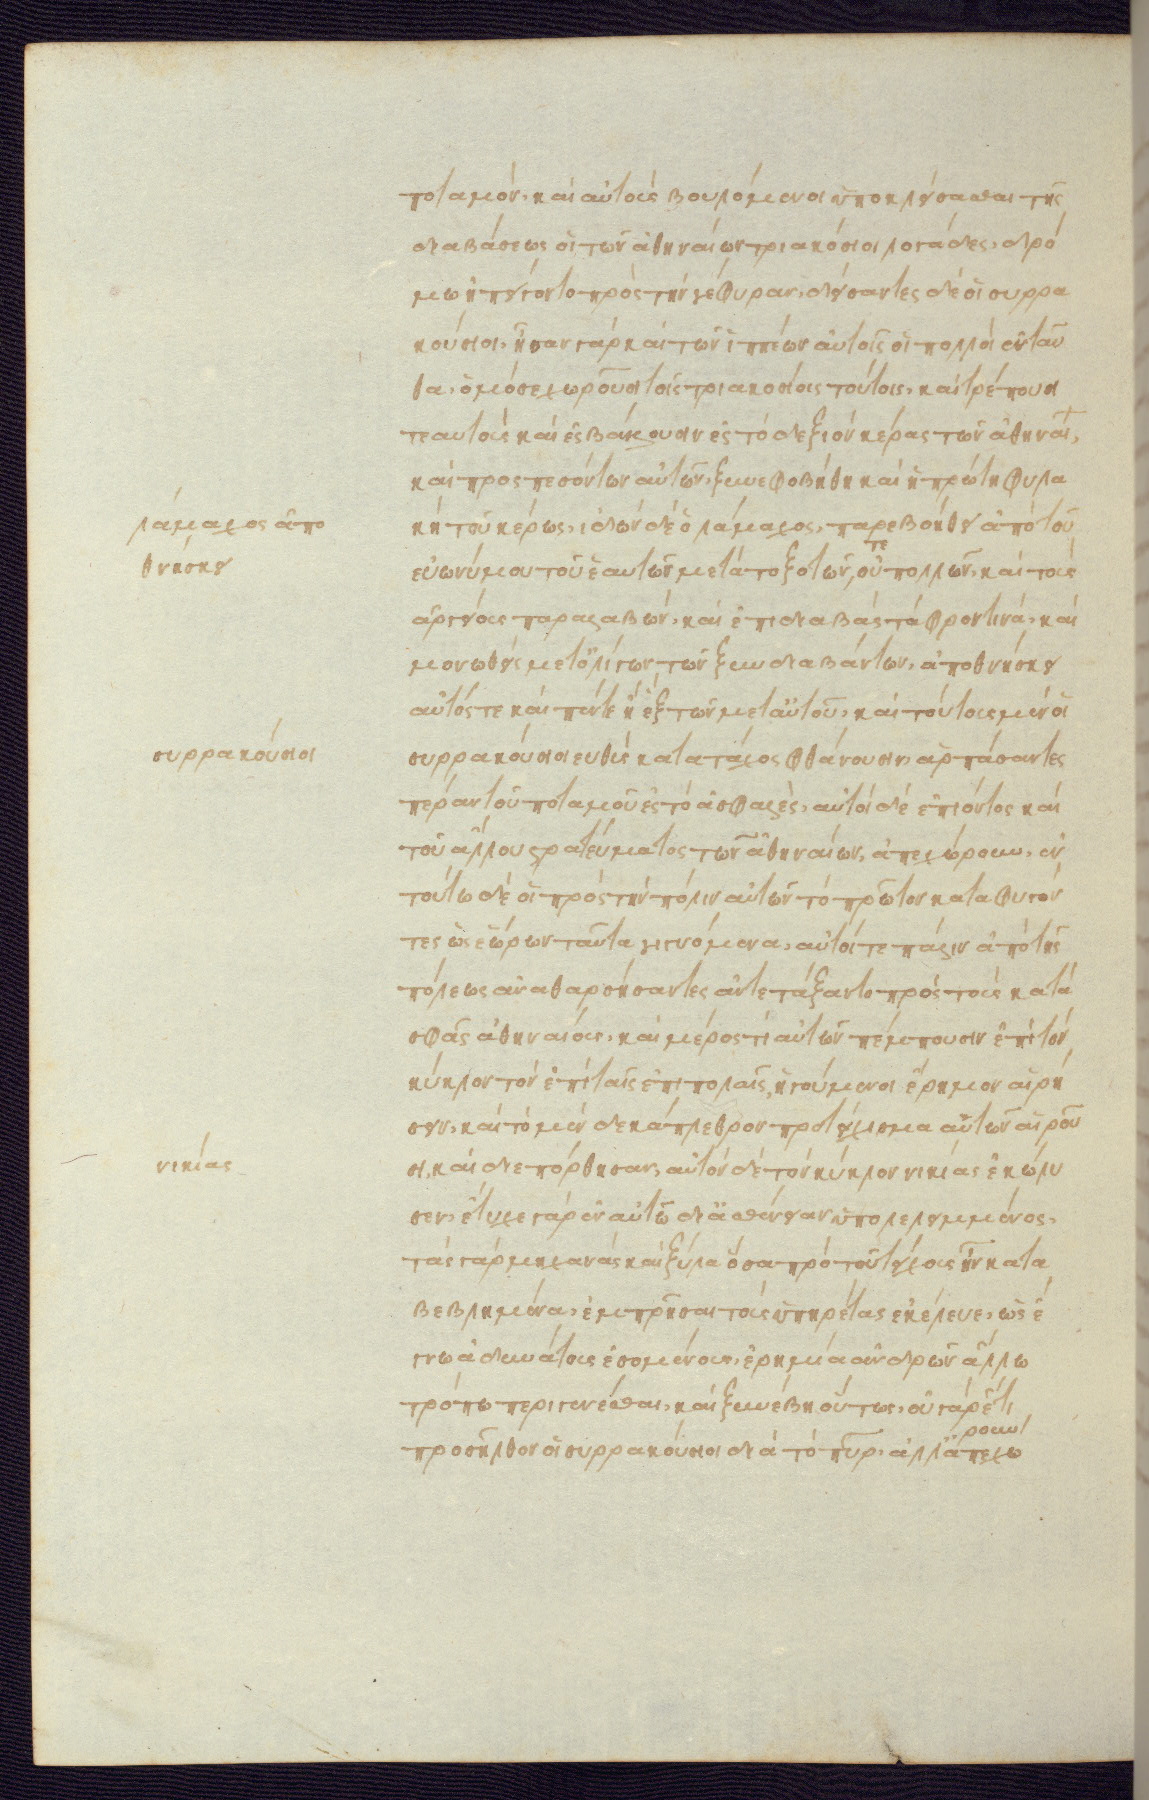 ποταμόν, καὶ αὐτοὺς βουλόμενοι ἀποκλείσασθαι τῆς
διαβάσεως οἱ τῶν ἀθηναίων τριακόσιοι λογάδες, δρό
μω ἠπείγοντο πρὸς τὴν γέφυραν, δείσαντες δὲ οἱ συρρα
κούσιοι, ἦσαν γὰρ καὶ τῶν ἱππέων αὐτοῖς οἱ πολλοὶ ἐνταῦ
θα, ὁμόσε χωροῦσι τοῖς τριακοσίοις τούτοις, καὶ τρέπουσι
τε αυτοὺς καὶ ἐσβάλλουσιν ἐς τὸ δεξιὸν κέρας τῶν ἀθηναί,
καὶ προσπεσόντων αὐτῶν, ξυνεφοβήθη καὶ ἡ πρώτη φυλα
κὴ τοῦ κέρως, ἰδὼν δὲ ὁ λάμαχος, παρεβοήθει ἀπὸ τοῦ
λάμαχος ἀπο
θνήσκει
εὐωνύμου τοῦ ἑαυτῶν μετὰ τοξοτῶν τε οὐ πολλῶν, καὶ τοὺς
ἀργείους παραλαβὼν, καὶ ἐπιδιαβὰς τάφρον τινὰ, καὶ
μονωθεὶς μετὀλίγων τῶν ξυνδιαβάντων, ἀποθνήσκει
αὐτός τε καὶ πέντε ἢ ἓξ τῶν μεταὐτοῦ, καὶ τούτους μὲν οἱ
συρρακούσιοι ευθὺς κατα τάχος φθάνουσιν, ἁρπάσαντες
συρρακούσιοι
πέραν τοῦ ποταμοῦ ἐς τὸ ἀσφαλὲς, αὐτοὶ δὲ ἐπιόντος καὶ
τοῦ ἄλλου στρατεύματος τῶν ἀθηναίων, ἀπεχώρουν, ἐν
τούτω δὲ οἱ πρὸς τὴν πόλιν αὐτῶν τὸ πρῶτον καταφυγόν
τες ὡς ἑώρων ταῦτα γιγνόμενα, αὐτοί τε πάλιν ἀπὸ τῆς
πόλεως ἀναθαρσήσαντες ἀντετάξαντο πρὸς τοὺς κατὰ
σφᾶς ἀθηναίους, καὶ μέρος τὶ αὐτῶν πέμπουσιν ἐπὶ τὸν
κύκλον τὸν ἐπὶ ταῖς ἐπιπολαῖς, ἡγούμενοι ἔρημον αἱρή
σειν, καὶ τὸ μὲν δεκάπλεθρον προτείχισμα αὐτῶν αἱροῦ
σι, καὶ διεπόρθησαν, αὐτὸν δὲ τὸν κύκλον νικίας ἐκώλυ
νικίας
σεν, ἔτυχε γὰρ ἐν αὐτῶ διἀσθένειαν ὑπολελειμμένος,
τὰς γὰρ μηχανὰς καὶ ξύλα ὅσα πρὸ τοῦ τείχους ἦν κατα
βεβλημένα, ἐμπρῆσαι τοὺς ὑπηρέτας ἐκέλευε, ὡς ἔ
γνω ἀδυνάτους ἐσομένους, ἐρημία ἀνδρῶν ἄλλω
τρόπω περιγενέσθαι, καὶ ξυνέβη οὕτως, οὐ γὰρ ἔτι
προσῆλθον οἱ συρρακούσιοι διὰ τὸ πῦρ, ἀλλἀπεχώ
ρουν